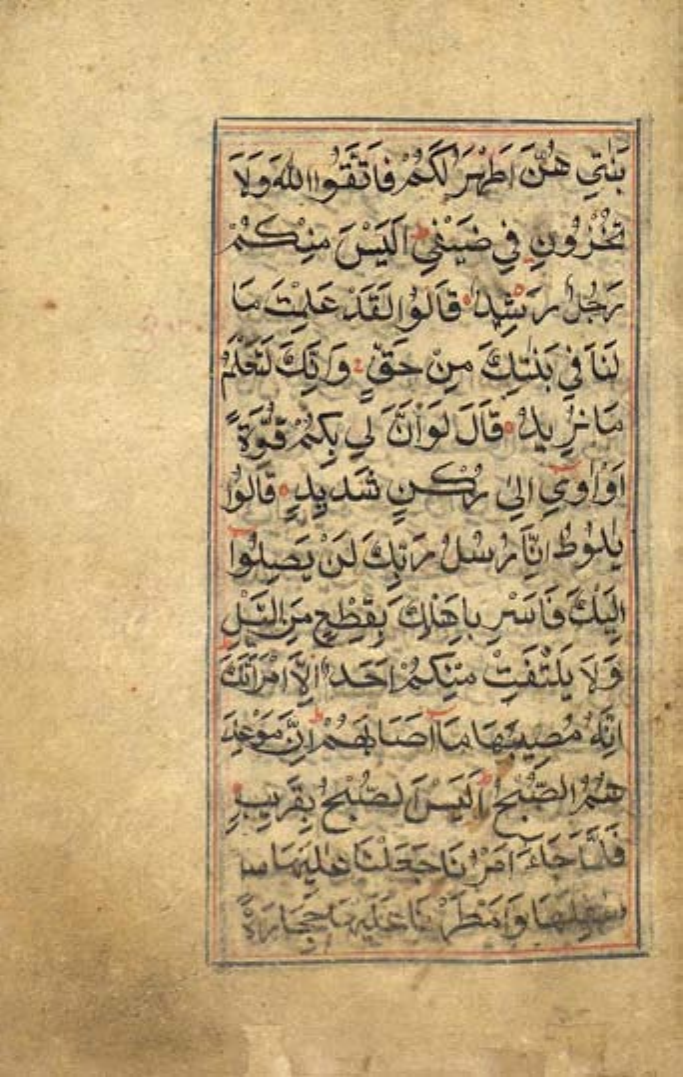 بَنٰتِي هُنَّ اَطْهَرُ لَكُمْ فَاتَّقُوا اللهَ وَلَا
تُخْزُونِ فِي ضَيْفِي ط اَلَيْسَ مِنْكُمْ
رَجُلٌ رَشِيدٌ ۝ قَالُوا لَقَدْ عَلِمْتَ مَا
لَنَا فِي بَنٰتِكَ مِنْ حَقٍّ ۚ وَاِنَّكَ لَتَعْلَمُ
مَا نُرِيدُ ۝ قَالَ لَوْ اَنَّ لِي بِكُمْ قُوَّةً
اَوْ اٰوِي اِلٰى رُكْنٍ شَدِيدٍ ۝ قَالُوا
يٰلُوطُ اِنَّا رُسُلُ رَبِّكَ لَنْ يَصِلُوا
اِلَيْكَ فَاَسْرِ بِاَهْلِكَ بِقِطْعٍ مِنَ الَّيْلِ
وَلَا يَلْتَفِتْ مِنْكُمْ اَحَدٌ اِلَّا امْرَاَتَكَ ط
اِنَّهُ مُصِيبُهَا مَا اَصَابَهُمْ ط اِنَّ مَوْعِدَ
هُمُ الصُّبْحُ ط اَلَيْسَ الصُّبْحُ بِقَرِيبٍ ۝
فَلَمَّا جَاءَ اَمْرُنَا جَعَلْنَا عَلِيَهَا سا
سَفِلَهَا وَاَمْطَرْنَا عَلَيْهَا حِجَارَةً